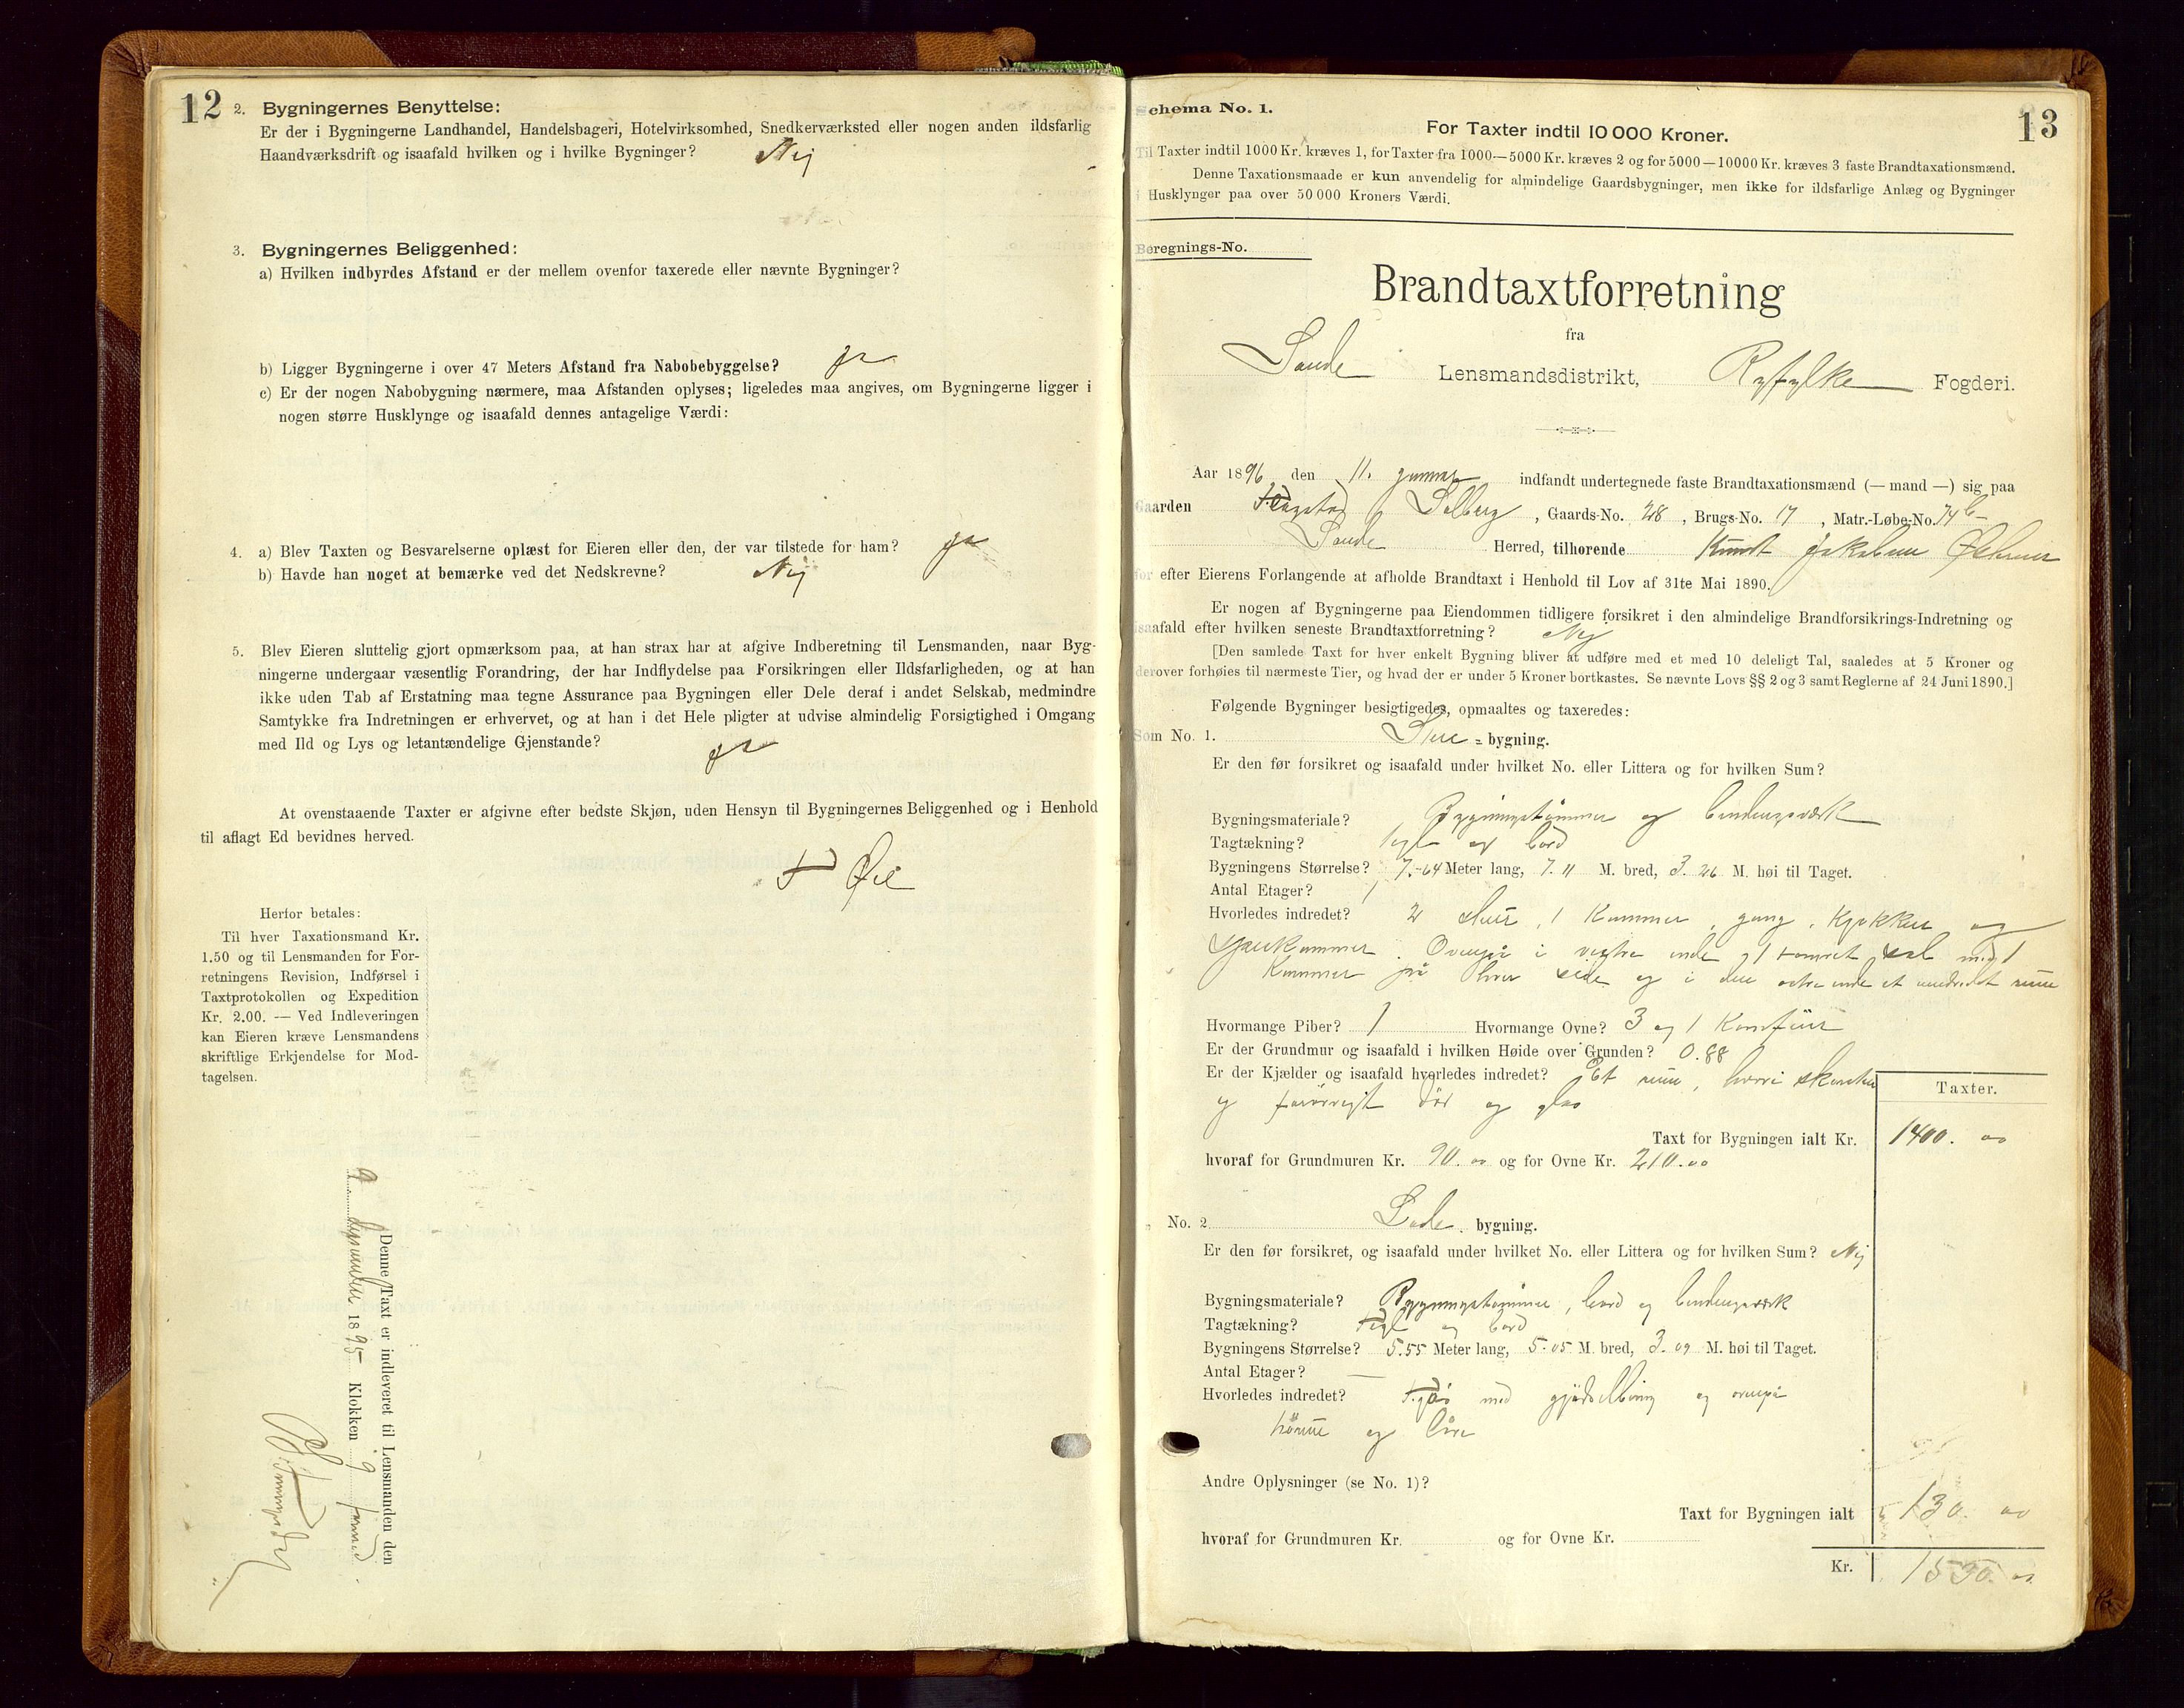 12
2. Bygningernes Benyttelse:
Er der i Bygningerne Landhandel, Handelsbageri, Hotelvirksomhed, Snedkerværksted eller nogen anden ildsfarlig
Haandværksdrift og isaafald hvilken og i hvilke Bygninger? Nej
3. Bygningernes Beliggenhed:
a) Hvilken indbyrdes Afstand er der mellem ovenfor taxerede eller nævnte Bygninger?
b) Ligger Bygningerne i over 47 Meters Afstand fra Nabobebyggelse? ja
c) Er der nogen Nabobygning nærmere, maa Afstanden oplyses; ligeledes maa angives, om Bygningerne ligger i
nogen større Husklynge og isaafald dennes antagelige Værdi:
4. a) Blev Taxten og Besvarelserne oplæst for Eieren eller den, der var tilstede for ham? ja
b) Havde han noget at bemærke ved det Nedskrevne? Nej
5. Blev Eieren sluttelig gjort opmærksom paa, at han strax har at afgive Indberetning til Lensmanden, naar Byg-
ningerne undergaar væsentlig Forandring, der har Indflydelse paa Forsikringen eller Ildsfarligheden, og at han
ikke uden Tab af Erstatning maa tegne Assurance paa Bygningen eller Dele deraf i andet Selskab, medmindre
Samtykke fra Indretningen er erhvervet, og at han i det Hele pligter at udvise almindelig Forsigtighed i Omgang
med Ild og Lys og letantændelige Gjenstande? ja
At ovenstaaende Taxter er afgivne efter bedste Skjøn, uden Hensyn til Bygningernes Beliggenhed og i Henhold
til aflagt Ed bevidnes herved.
Herfor betales:
Til hver Taxationsmand Kr.
1.50 og til Lensmanden for For-
retningens Revision, Indførsel i
Taxtprotokollen og Expedition
Kr. 2.00. — Ved Indleveringen
kan Eieren kræve Lensmandens
skriftlige Erkjendelse for Mod-
tagelsen.
Denne Taxt er indleveret til Lensmanden den
9 1895 Klokken 9 formd
13
Schema No. 1.
For Taxter indtil 10 000 Kroner.
Til Taxter indtil 1000 Kr. kræves 1, for Taxter fra 1000—5000 Kr. kræves 2 og for 5000—10000 Kr. kræves 3 faste Brandtaxationsmænd.
Denne Taxationsmaade er kun anvendelig for almindelige Gaardsbygninger, men ikke for ildsfarlige Anlæg og Bygninger
i Husklynger paa over 50 000 Kroners Værdi.
Beregnings-No.
Brandtaxtforretning
fra
Sande Lensmandsdistrikt, Ryfylke Fogderi.
Aar 1896 den 11. januar indfandt undertegnede faste Brandtaxationsmænd (— mand —) sig paa
Gaarden Solberg, Gaards-No. 28, Brugs-No. 17, Matr.-Løbe-No. 74 b
Sande Herred, tilhørende
for efter Eierens Forlangende at afholde Brandtaxt i Henhold til Lov af 31te Mai 1890.
Er nogen af Bygningerne paa Eiendommen tidligere forsikret i den almindelige Brandforsikrings-Indretning og
isaafald efter hvilken seneste Brandtaxtforretning? Nej
[Den samlede Taxt for hver enkelt Bygning bliver at udføre med et med 10 deleligt Tal, saaledes at 5 Kroner og
derover forhøies til nærmeste Tier, og hvad der er under 5 Kroner bortkastes. Se nævnte Lovs §§ 2 og 3 samt Reglerne af 24 Juni 1890.]
Følgende Bygninger besigtigedes, opmaaltes og taxeredes:
Som No. 1. Stue=bygning.
Er den før forsikret og isaafald under hvilket No. eller Littera og for hvilken Sum?
Bygningsmateriale? Bygningstømmer og bindingsværk
Tagtækning? tegl og bord
Bygningens Størrelse? 7.64 Meter lang, 7.11 M. bred, 3.26 M. høi til Taget.
Antal Etager? 1
Hvorledes indredet? 2 stuer, 1 Kammer, gang, Kjøkken og
spiskammer. Ovenpå i vestre ende 1 tømret sal med 1
Kammer på hver side og i den østre ende et uindredet rum
Hvormange Piber? 1 Hvormange Ovne? 3 og 1 Komfur
Er der Grundmur og isaafald i hvilken Høide over Grunden? 0.88
Er der Kjælder og isaafald hvorledes indredet? Et rum, hvori
og forøvrigt dør og glas
Taxter.
Taxt for Bygningen ialt Kr. 1400.00
hvoraf for Grundmuren Kr. 90.00 og for Ovne Kr. 210.00
No. 2 Lade bygning.
Er den før forsikret, og isaafald under hvilket No. eller Littera og for hvilken Sum? Nej
Bygningsmateriale? Bygningstømmer, bord og bindingsværk
Tagtækning? Tegl og bord
Bygningens Størrelse? 5.55 Meter lang, 5.05 M. bred, 3.09 M. høi til Taget.
Antal Etager? —
Hvorledes indredet? med og ovenpå
og
Andre Oplysninger (se No. 1)?
Taxt for Bygningen ialt 130.00
hvoraf for Grundmuren Kr. og for Ovne Kr.
Kr. 1530.00